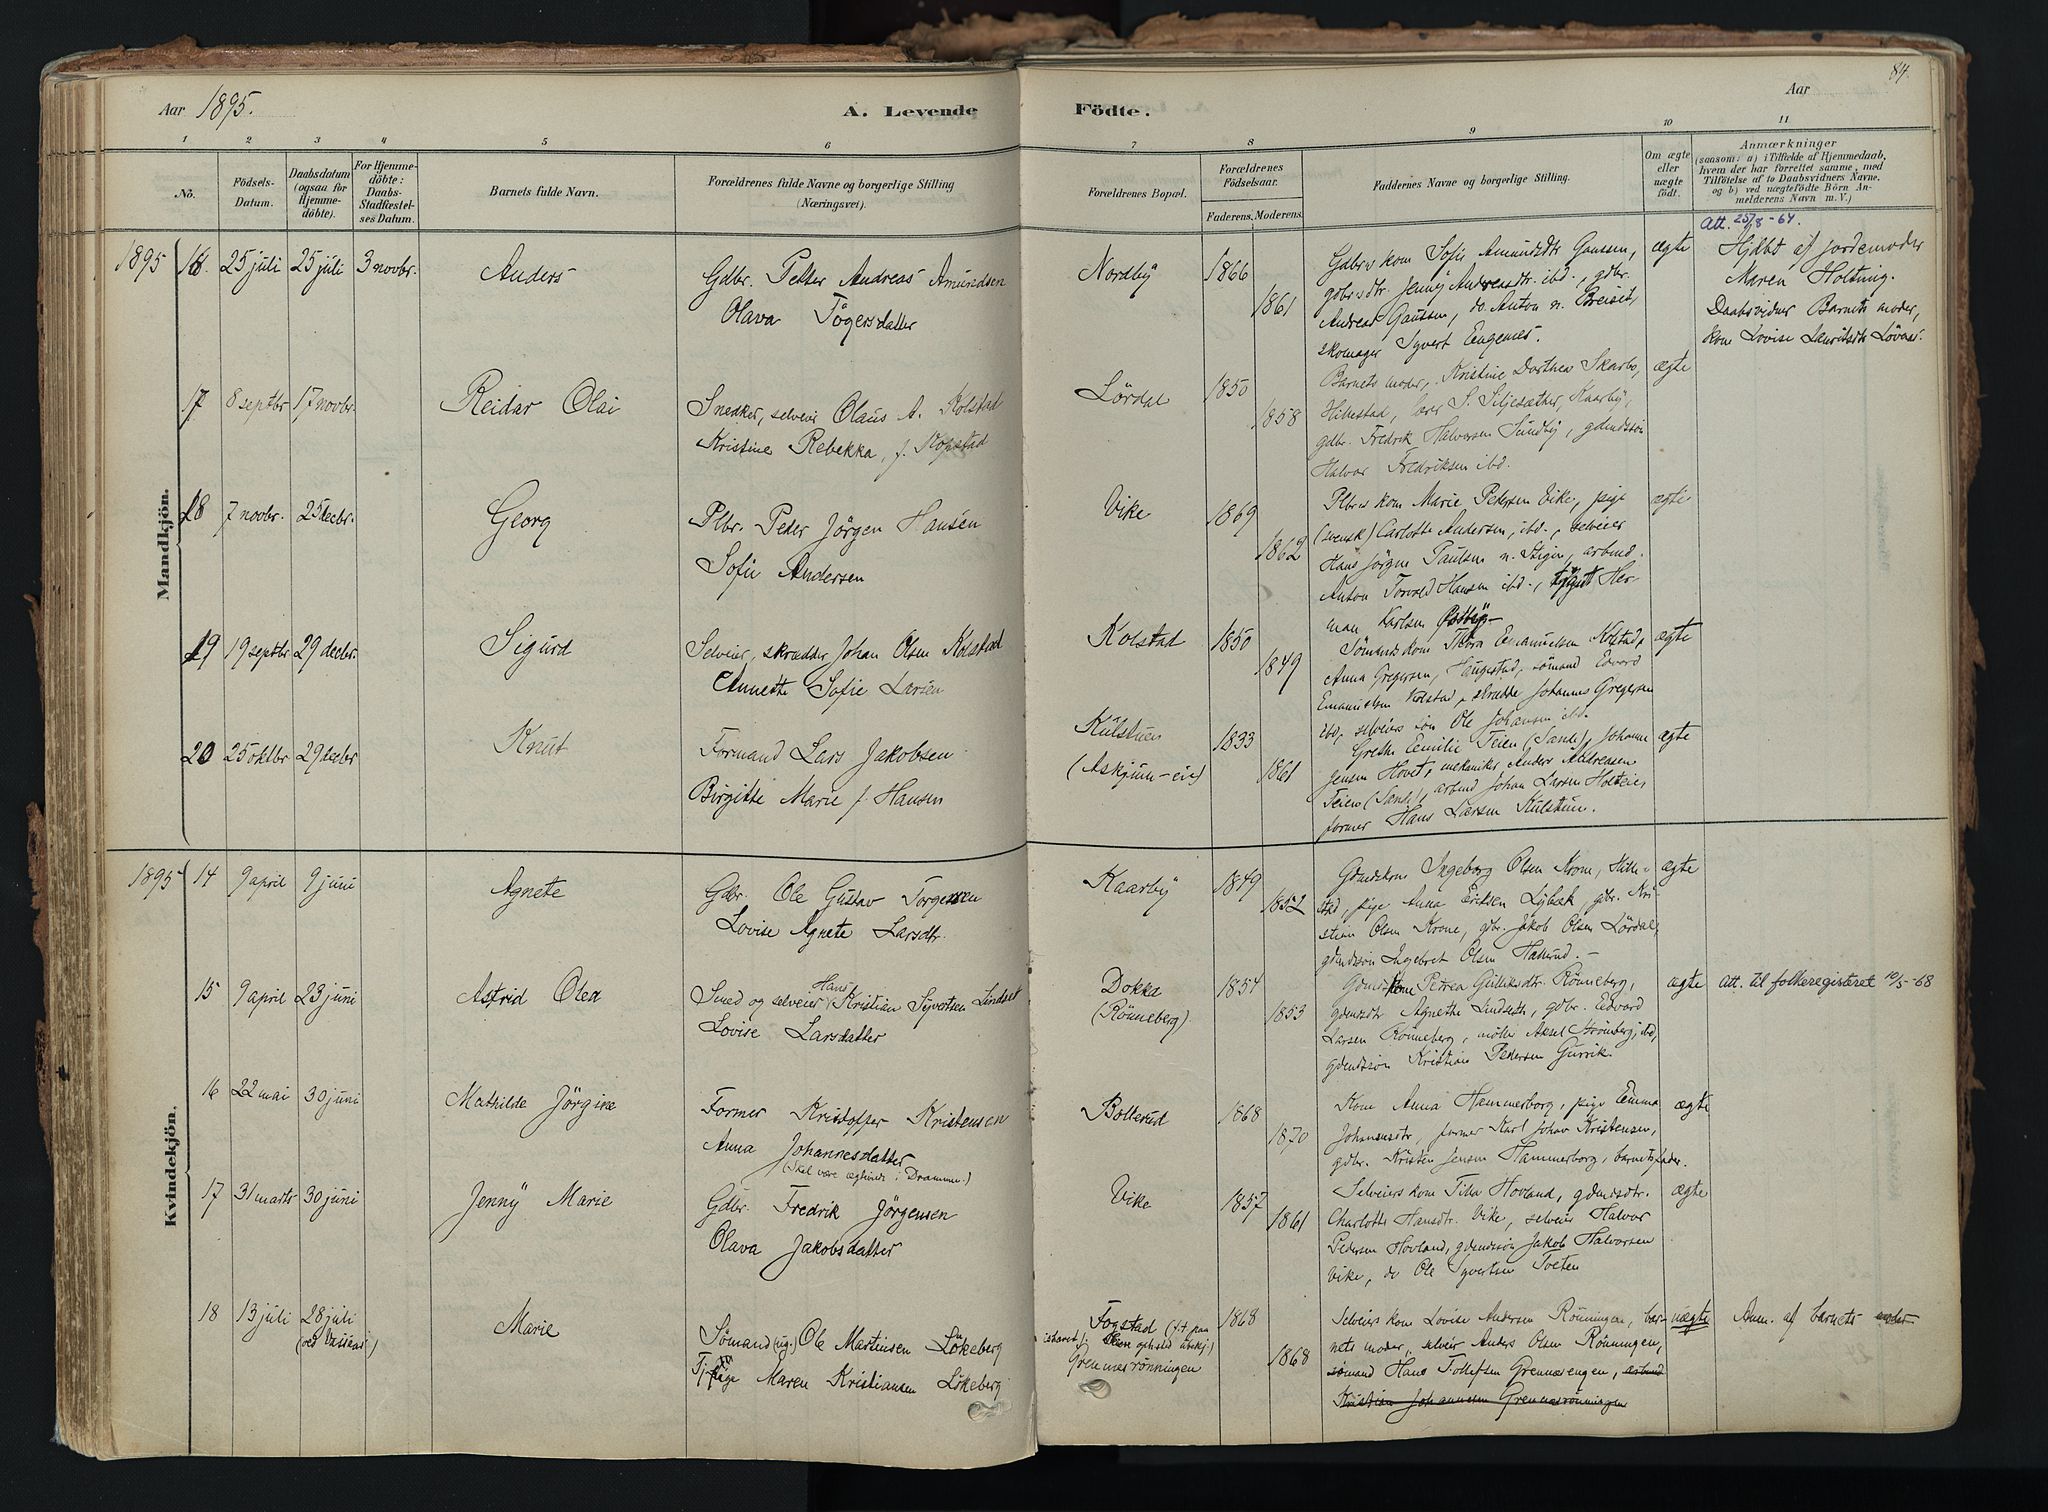 84.
Aar 1895.
A. Levende
Födte.
Aar
1 2 3 4 5 6 7 8 9 10 11
No.
Födsels-
Datum.
Daabsdatum
(ogsaa for
Hjemme-
döbte).
For Hjemme-
döbte:
Daabs-
Stadfæstel-
ses Datum.
Barnets fulde Navn.
Forældrenes fulde Navne og borgerlige Stilling
(Næringsvei).
Forældrenes Bopæl.
Forældrenes
Födselsaar.
Faderens. Moderens.
Faddernes Navne og borgerlige Stilling.
Om ægte
eller
uægte
født.
Anmærkninger
(saasom: a) i Tilfælde af Hjemmedaab,
hvem der har forrettet samme, med
Tilföielse af to Daabsvidners Navne,
og b) ved uægtefödte Börn An-
melderens Navn m. V.)
Mandkjön.
1895 16. 25 juli 25 juli 3 novbr. Anders
Gdbr. Petter Andreas Amundsen
Olava Tögersdatter
Nordby 1866
1861
Gdbrs kom Sofie Amundsdtr Gaussen,
gdbrsdtr. Jenny Andreasdtr. ibd., gdbr.
Andreas Gaussen, do. Anton n. Breiset,
skomager Syvert Engenes.
ægte
Att. 25/8-64.
Hjdbt af jordemoder
Maren Holtung.
Daabsvidner Barnets moder,
kone Lovise Lauritsdtr Lövaas.
17 8 septbr 17 novbr. Reidar Olai
Snedker, selveier Olaus A. Kolstad
Kristine Rebekka, f. Kopstad
Lördal 1850
1858
Barnets moder, Kristine Dorthea Skarbo,
Hillestad, lærer S. Siljesæther, Kaarby,
gdbr. Fredrik Halvorsen Sundby, gdmdssön
Halvor Fredriksen ibd.
ægte
18 7 novbr. 25 decbr. Georg
Plbr. Peder Jörgen Hansen
Sofie Andersen
Vike 1869
1862
Plbrs kom Marie Pedersen Vike, pige
(svensk) Carlotte Andersen, ibd., selveier
Hans Jörgen Paulsen n. Stigen, arbmd.
Anton Torvald Hansen ibd., Her-
man Karlsen Østby
ægte
19 19 septbr 29 decbr. Sigurd
Selveier, skrædder Johan Olsen Kolstad
Annette Sofie Larsen
Kolstad 1850
1849
Sömands kom Thora Emanuelsen Kolstad,
Anna Gregersen, Haugestad, sömand Edvard
Emanuelsen Kolstad, skrædder Johannes Gregersen
ibd, selveiers sön Ole Johansen ibd.
ægte
20 25 oktbr 29 decbr Knut
Formand Lars Jakobsen
Birgitte Marie f. Hansen
Kulstuen
(Askjum-eie)
1833
1861
Grethe Emilie Teien (Sande), Johanne
Jensen Hovet, mekaniker Anders Andreassen
Teien (Sande), arbmd Johan Larsen Holteie,
former Hans Larsen Kulstuen.
ægte
Kvindekjön.
1895 14 9 april 9 juni Agnete
Gdbr. Ole Gustav Torgersen
Lovise Agnete Larsdtr.
Kaarby 1849
1852
Gdmdskone Ingeborg Olsen Krone, Hille-
stad, pige Anna Eriksen Lybæk, gdbr. Kri-
stian Olsen Krone, gdbr. Jakob Olsen Lördal,
gdmdssön Ingebret Olsen Hallerud.
ægte
15 9 april 23 juni Astrid Olea
Hans
Smed og selveier Kristian Syvertsen Lindset
Lovise Larsdatter
Dokka
(Rönneberg)
1854
1853
Gdmdskone Petrea Gulliksdtr. Rönneberg,
gdmdsdtr Agnethe Lindseth, gdbr. Edvard
Larsen Rönneberg, möller Aksel Strömberg, ibd,
gdmdssön Kristian Pedersen Gurrik.
ægte
Att. til folkeregisteret 10/5-68
16 22 mai 30 juni Mathilde Jörgine
Former Kristoffer Kristensen
Anna Johannesdatter
(Skal være ægteviede i Drammen.)
Bollerud 1868
1870
Kone Anna Hemmerborg, pige Emma
Johannesdtr, former Karl Johan Kristensen,
gdbr. Kristen Jensen Hammerborg, barnets fader.
ægte
17 31 marts 30 juni Jenny Marie
Gdbr. Fredrik Jörgensen
Olava Jakobsdatter
Vike 1857
1861
Selveiers kom Tilla Hovland, gdmdsdtr.
Charlotte Hansdtr. Vike, selveier Halvor
Pedersen Hovland, gdmdssön Jakob Halvorsen
Vike, do Ole Syvertsen Tveten
ægte
18 13 juli 28 juli Marie
(ved Vassaas)
Sömand (ug.) Ole Martinsen Lökeberg
Tj. pige Maren Kristiansen Lökeberg
Fogstad
Grennesrönningen
1868
1868
Selveiers kom Lovise Andersen Rönningen, bar-
nets moder, selveier Anders Olsen Rönningen,
sömand Hans Tollefsen Grennesengen, arbmd
Kristian Johannesen Grennesrönningen
uægte
Anm. af barnets moder